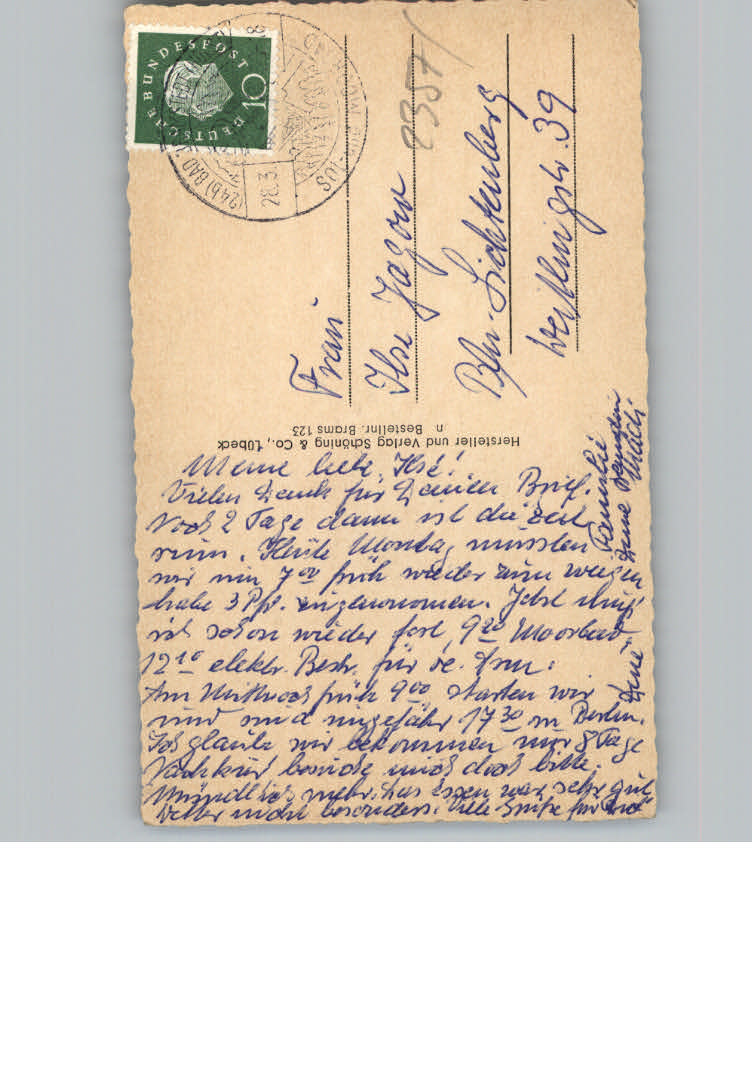 DEUTSCHE BUNDESPOST
10
(24b) BAD
28.3.
2357/
Frau
Ilse Jagow
Bln.-Lichtenberg
Weitlingstr. 39
Hersteller und Verlag Schöning & Co., Lübeck
Bestellnr. Brams 123
Meine liebe Ilse!
Vielen Dank für Deinen Brief.
Noch 2 Tage dann ist die Zeit
rum. Heute Montag mussten
wir um 7 00 früh wieder zum wiegen
habe 3 Pf. zugenommen. Jetzt muß
ich schon wieder fort, 9 20 Moorbad
12 10 elektr. Bestr. für re. Arm.
Am Mittwoch früh 9 00 starten wir
und sind ungefähr 17 30 in Berlin.
Ich glaube wir bekommen nur 8 Tage
Nachkur besuche mich doch bitte.
Mündlich mehr. Das Essen war sehr gut
Wetter nicht besonders. Viele Grüße für Dich
Familie
Deine